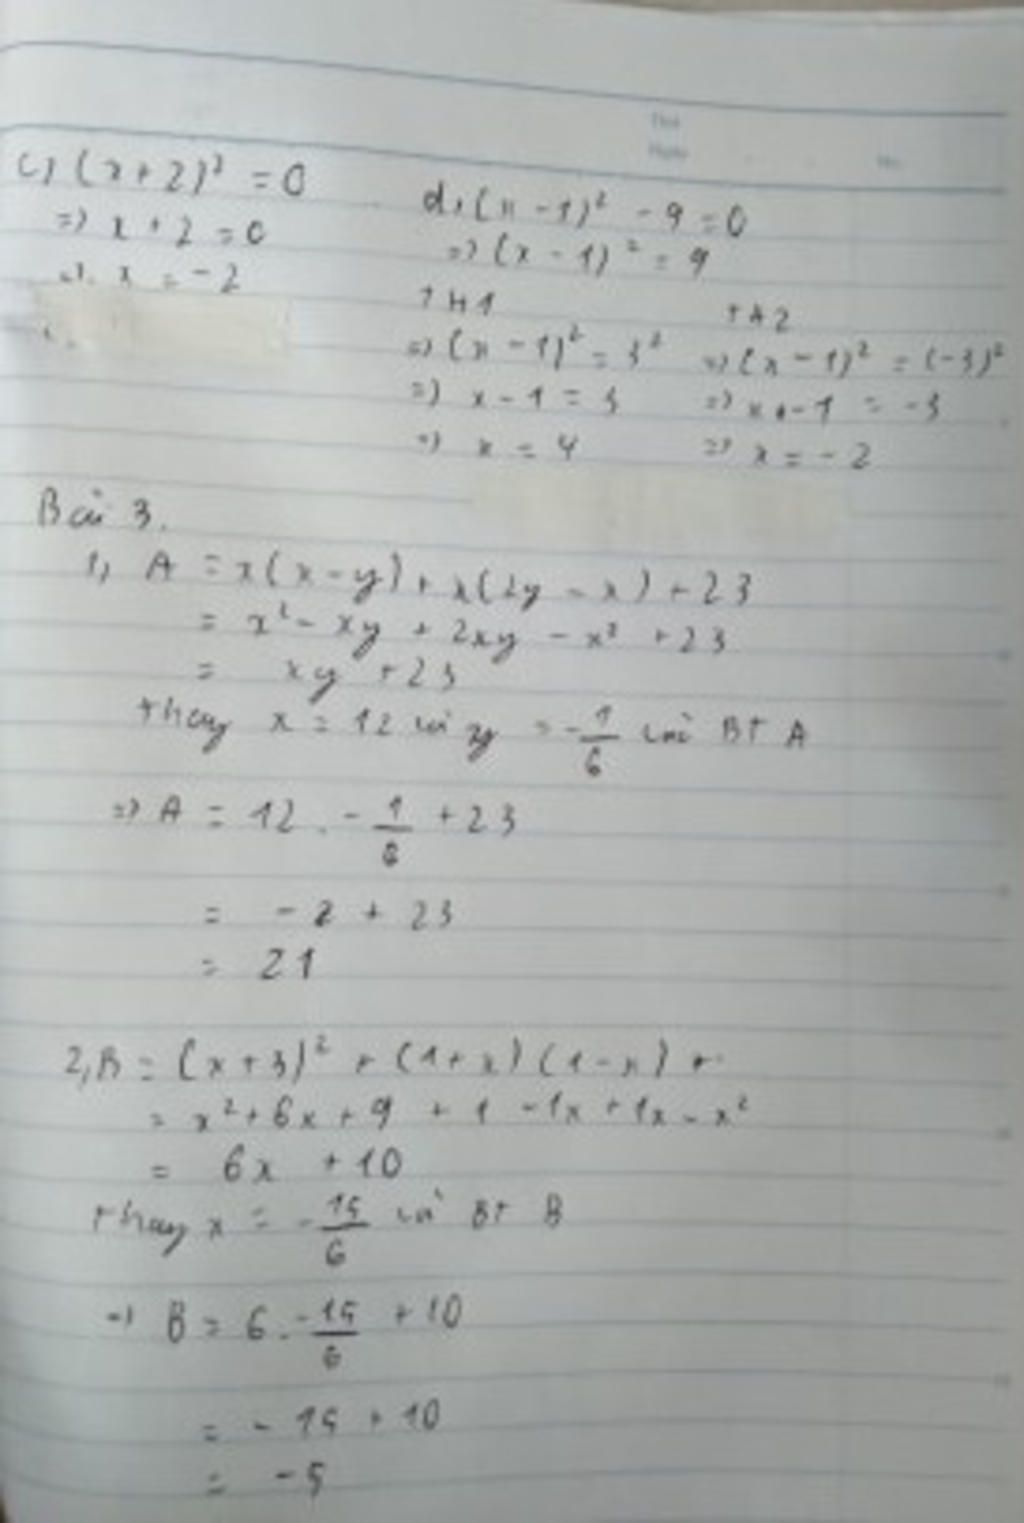 c, (x+2)² = 0
=> x + 2 = 0
=> x = -2
d, (x-1)² - 9 = 0
=> (x-1)² = 9
TH1
=> (x-1)² = 3²
=> x - 1 = 3
=> x = 4
TH2
=> (x-1)² = (-3)²
=> x - 1 = -3
=> x = -2
Bài 3.
1, A = x(x-y) + x(2y-x) + 23
= x² - xy + 2xy - x² + 23
= xy + 23
thay x = 12 và y = -1/6 vào BT A
=> A = 12 . -1/6 + 23
= -2 + 23
= 21
2, B = (x+3)² + (1+x)(1-x)
= x² + 6x + 9 + 1 - 1x + 1x - x²
= 6x + 10
thay x = -15/6 BT B
=> B = 6 . -15/6 + 10
= -15 + 10
= -5